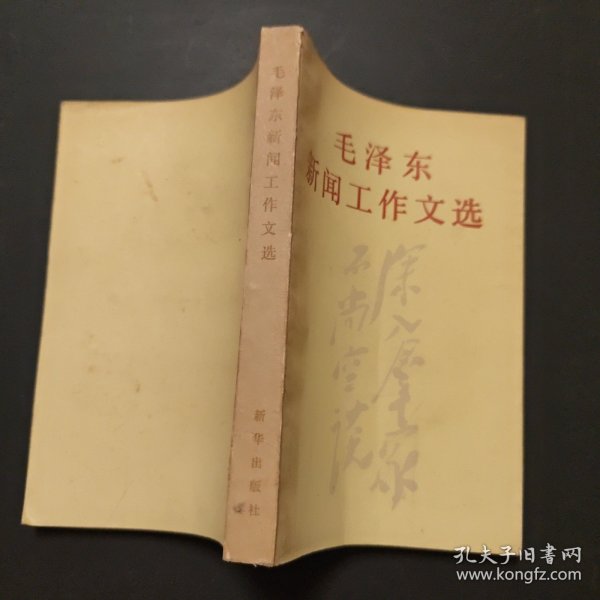 毛泽东新闻工作文选
新华出版社
毛泽东
新闻工作文选
深入群众
不尚空谈
孔夫子旧书网
www.kongfz.com